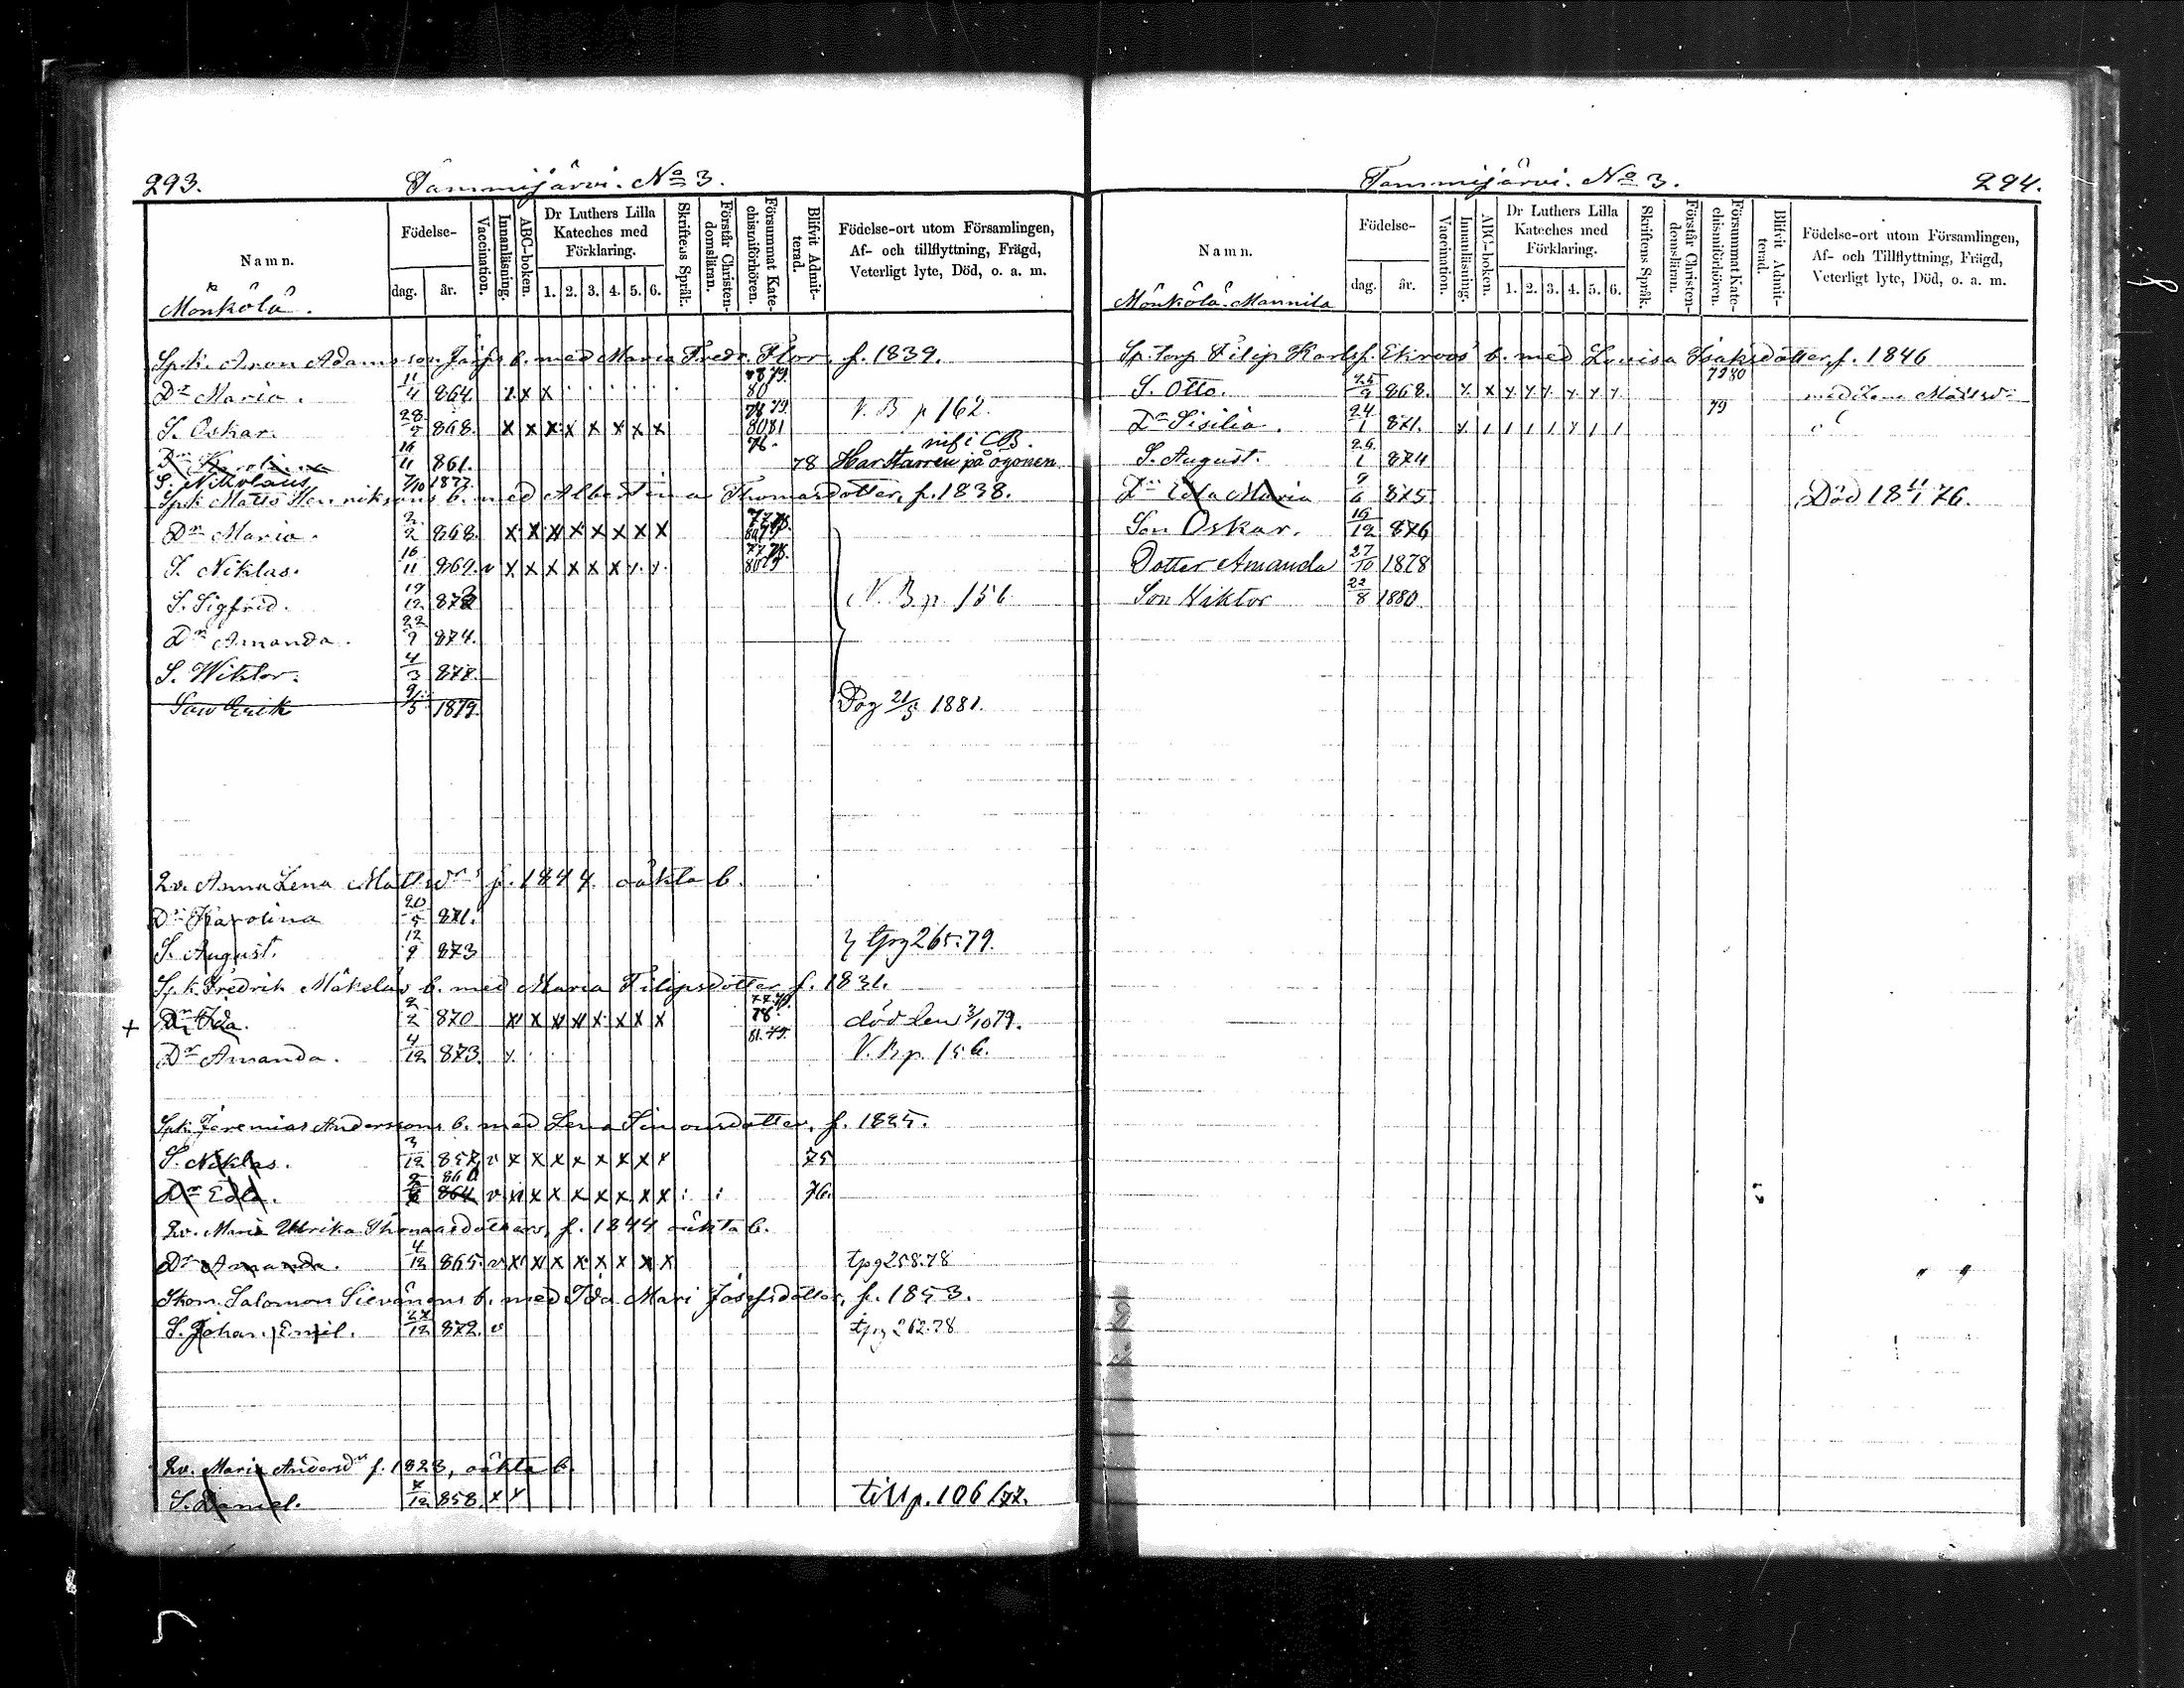 293. Tammijärvi. No 3.
Namn. Födelse- dag. år. Vaccination. Innanläsning. ABC-boken. Dr Luthers Lilla Kateches med Förklaring. 1. 2. 3. 4. 5. 6. Skriftens Språk. Förstår Christendomsläran. Försummat Katechismiförhören. Blifvit Admitterad. Födelse-ort utom Församlingen, Af- och tillflyttning, Frägd, Veterligt lyte, Död, o. a. m.
Mönkölä.
Spk. Aron Adamsson b. med Maria Fredr. Flor, f. 1839.
Dr Maria. 11/4 864. x x x 80
S. Oskar. 28/9 868. x x x x x x x x 78 79. 8081 V. B p 162.
Dr Karolina 16/11 861. 76. 78 Har starren på ögonen nif i CB.
S. Nikolaus 7/10 1877.
Spk Matts Henrikssons b. med Albertina Thomasdotter, f. 1838.
Dr Maria. 2/2 868. x x x x x x x x
S. Niklas. 16/11 869. v x x x x x x x x
S. Sigfrid. 19/12 872 V. B. p. 156
Dr Amanda. 22/9 874.
S. Wiktor. 4/3 878.
Son Erik 9/5 1879. Dog 21/5 1881.
Qv. Anna Lena Mattsdrs f. 1844. oäkta b.
Dr Karolina 20/5 871.
S. August. 12/9 873 } tpg 265.79.
Spk. Fredrik Mäkeläs b. med Maria Filipsdotter f. 1831.
+ Dr Ida. 2/2 870 x x x x x x x x 78. död den 3/10 79.
Dr Amanda. 4/12 873. x. 81.79. V. B p. 156.
Spk. Jeremias Anderssons b. med Lena Simonsdotter, f. 1825.
S. Niklas. 3/12 857. v x x x x x x x x 75
Dr Edla. 864 860 v x x x x x x x x 76.
Qv. Maria Ulrika Thomasdotters, f. 1844 oäkta b.
Dr Amanda. 4/12 865. v x x x x x x x x tpg 258.78
Skom. Salomon Sievänens b. med Ida Mari Josefsdotter, f. 1853.
S. Johan Emil. 27/12 872. v tpg 262.78
Qv. Maria Andersdr f. 1823, oäkta b.
S. Daniel. 7/12 858. x x till p. 106 /77.
Tammijärvi. No 3. 294.
Namn. Födelse- dag. år. Vaccination. Innanläsning. ABC-boken. Dr Luthers Lilla Kateches med Förklaring. 1. 2. 3. 4. 5. 6. Skriftens Språk. Förstår Christendomsläran. Försummat Katechismiförhören. Blifvit Admitterad. Födelse-ort utom Församlingen, Af- och Tillflyttning, Frägd, Veterligt lyte, Död, o. a. m.
Mönkölä. Mannila
Sp. torp. Filip Karlss. Ekroos' b. med Lovisa Isaksdotter, f. 1846
S. Otto. 25/9 868. x x x x x x x x 7980
Dr Sisilia. 24/1 871. 79
S. August. 26/1 874
Dr Edla Maria 9/6 875. Död 18 11/1 76.
Son Oskar. 19/12 876
Dotter Amanda 27/10 1878
Son Wiktor 22/8 1880.